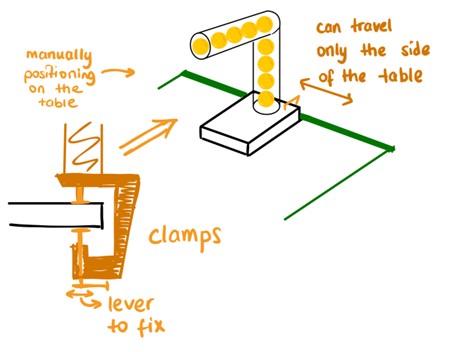 manually
positioning
on the
table
can travel
only the side
of the table
clamps
lever
to fix